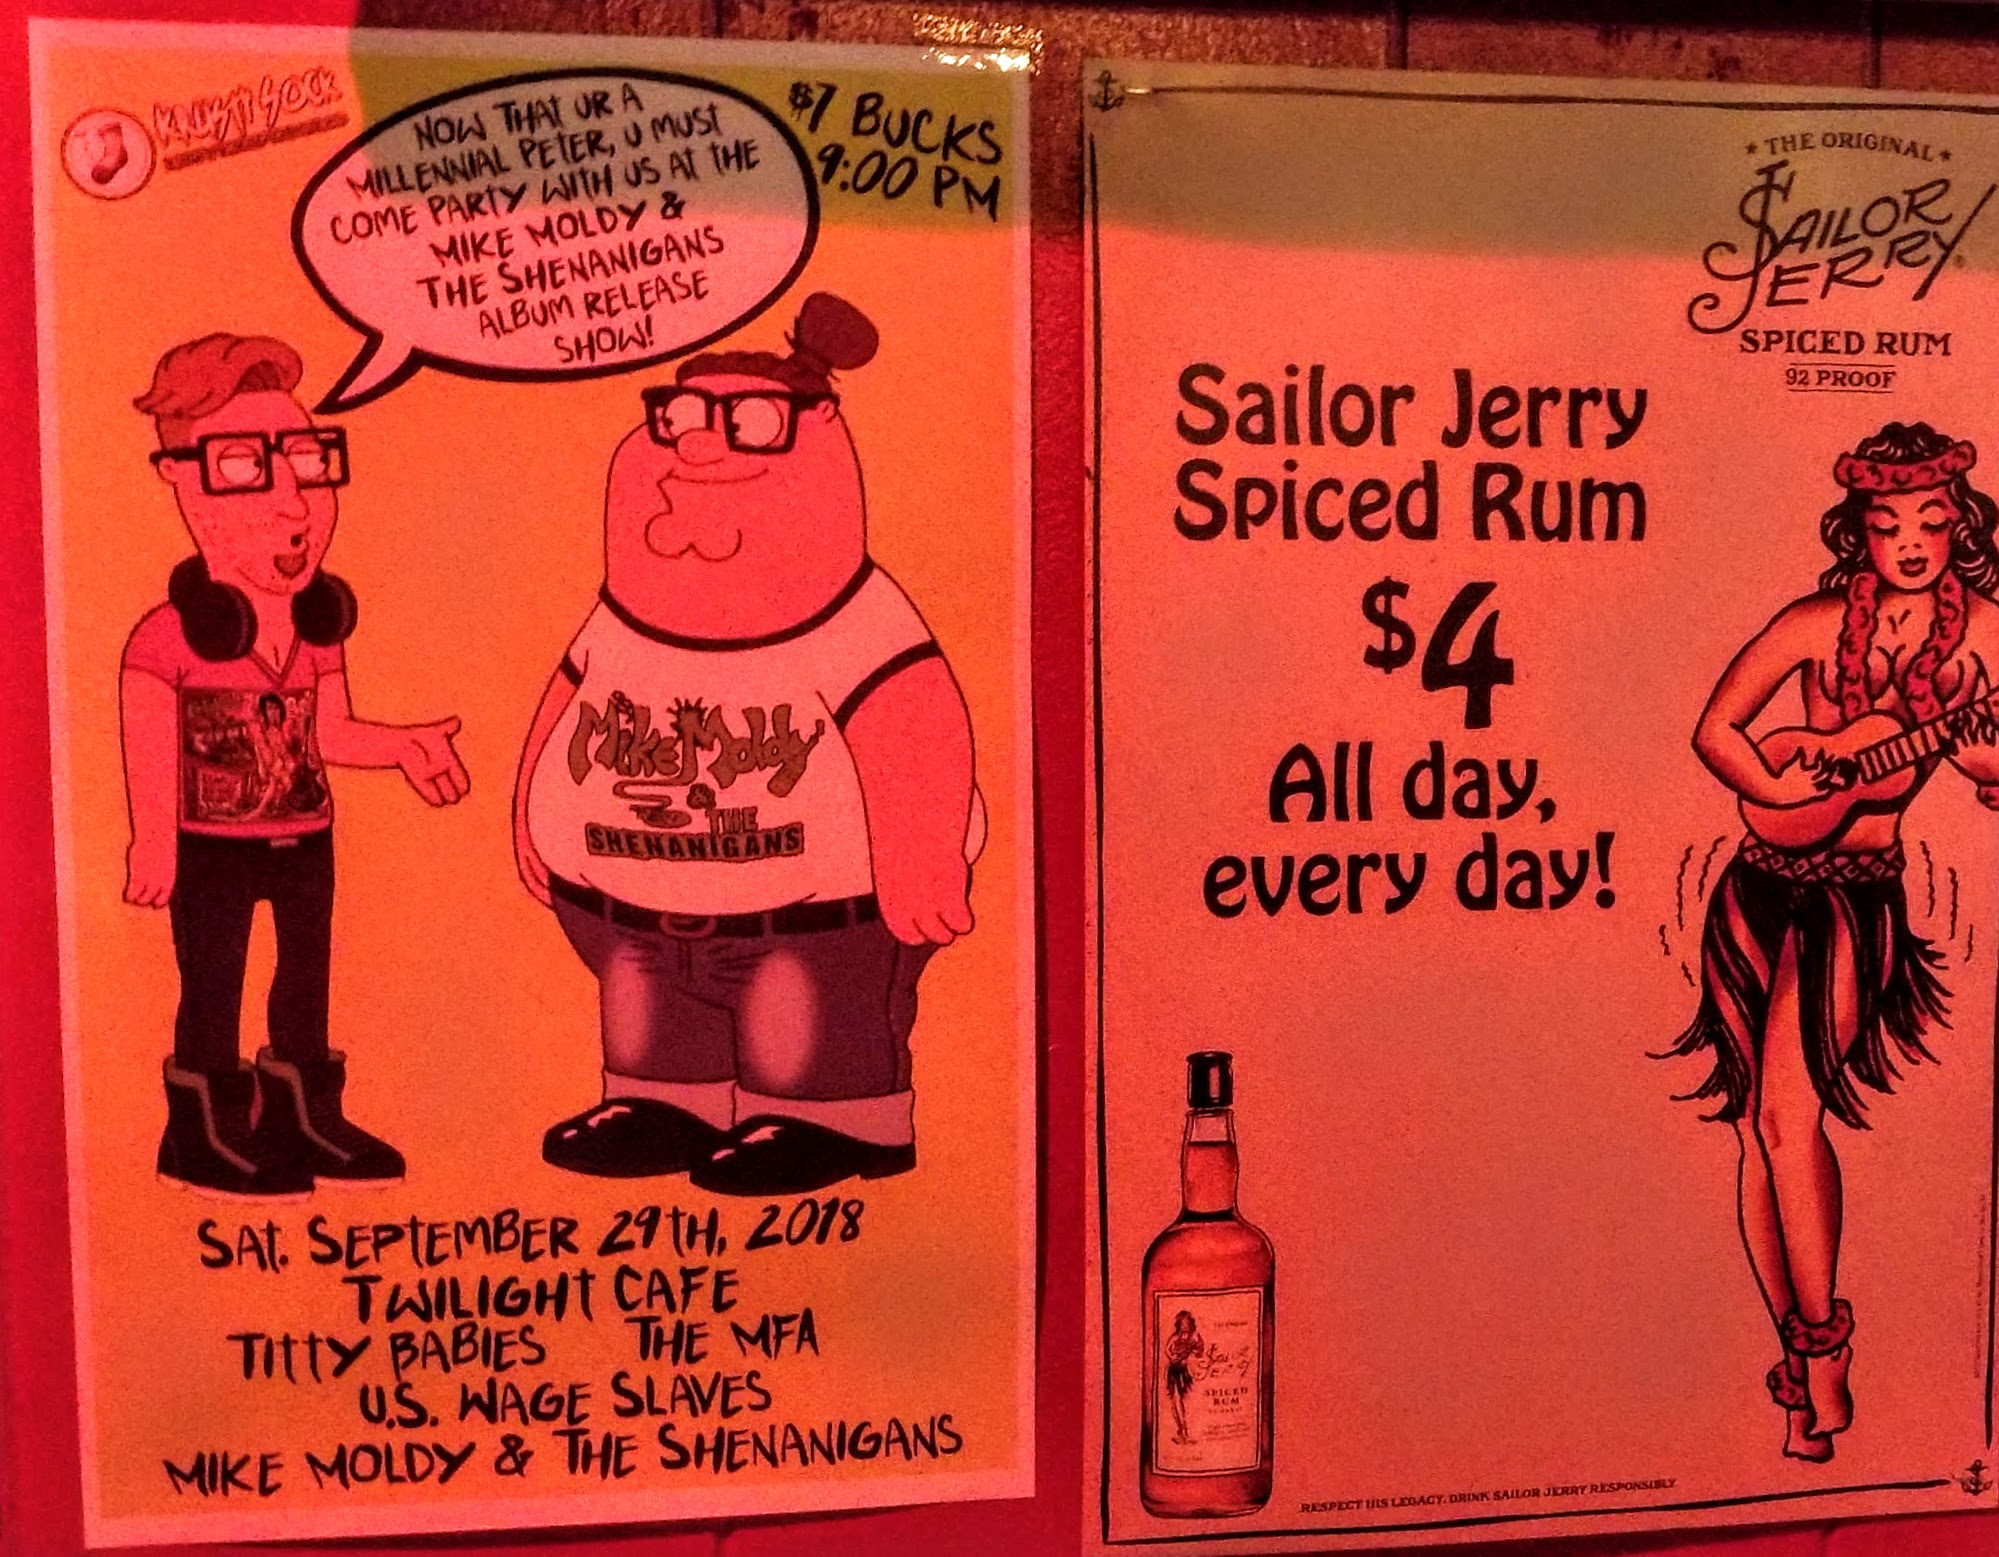 KRUSTY SOCK
NOW THAT UR A
MILLENNIAL PETER, U MUST
COME PARTY WITH US AT THE
MIKE MOLDY &
THE SHENANIGANS
ALBUM RELEASE
SHOW!
$7 BUCKS
9:00 PM
Mike Moldy
& THE
SHENANIGANS
SAT. SEPTEMBER 29TH, 2018
TWILIGHT CAFE
TITTY BABIES THE MFA
U.S. WAGE SLAVES
MIKE MOLDY & THE SHENANIGANS
* THE ORIGINAL *
SAILOR
JERRY
SPICED RUM
92 PROOF
Sailor Jerry
Spiced Rum
$4
All day,
every day!
SAILOR
JERRY
SPICED
RUM
RESPECT HIS LEGACY. DRINK SAILOR JERRY RESPONSIBLY